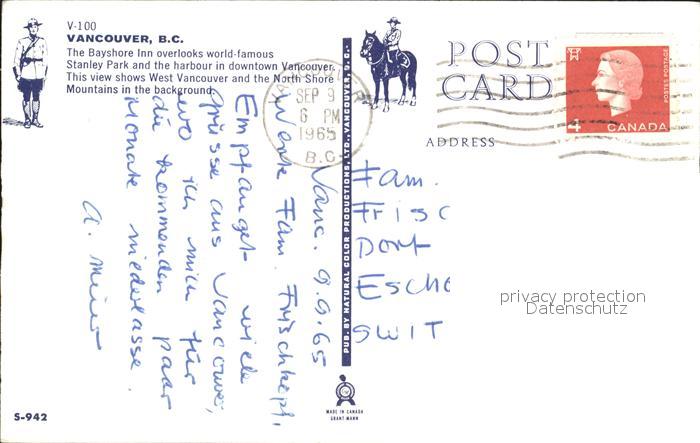 V-100
VANCOUVER, B.C.
The Bayshore Inn overlooks world-famous
Stanley Park and the harbour in downtown Vancouver.
This view shows West Vancouver and the North Shore
Mountains in the background.
Vanc. 9.9.65
Werte Fam. Frischkopf,
Empfanget viele
Grüsse aus Vancouver,
wo ich mich für
die kommenden paar
Monate niederlasse.
A. Meier
SEP 9
6 PM
1965
B.C.
PUB. BY NATURAL COLOR PRODUCTIONS, LTD., VANCOUVER, B.C.
POST
CARD
4
CANADA
POSTES POSTAGE
ADDRESS
Fam.
Frisc
Dorf
Esche
SWIT
privacy protection
Datenschutz
MADE IN CANADA
GRANT-MANN
S-942